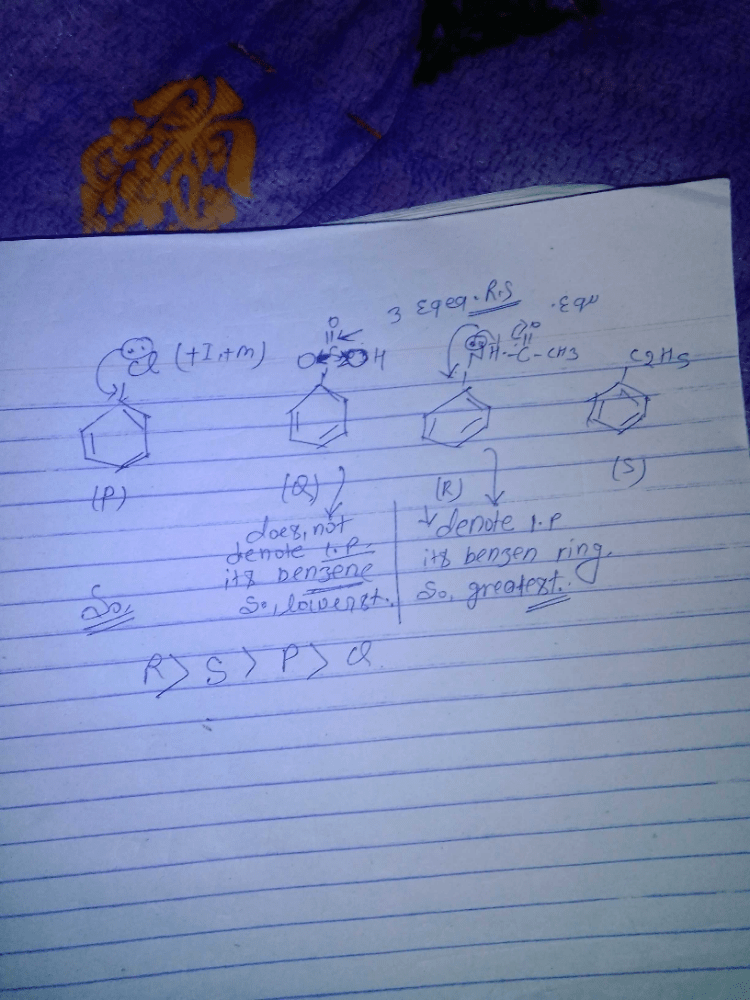 3 Eqeq. R.S .Equ
Cl (+I,+m)
O
O S OOH
NH-C-CH3
O
C2H5
(P) (Q) (R) (S)
does, not
denote l.p.
its benzene
So, lowerst.
↓ denote l.p
its benzen ring.
So, greatest.
So,
R > S > P > Q.